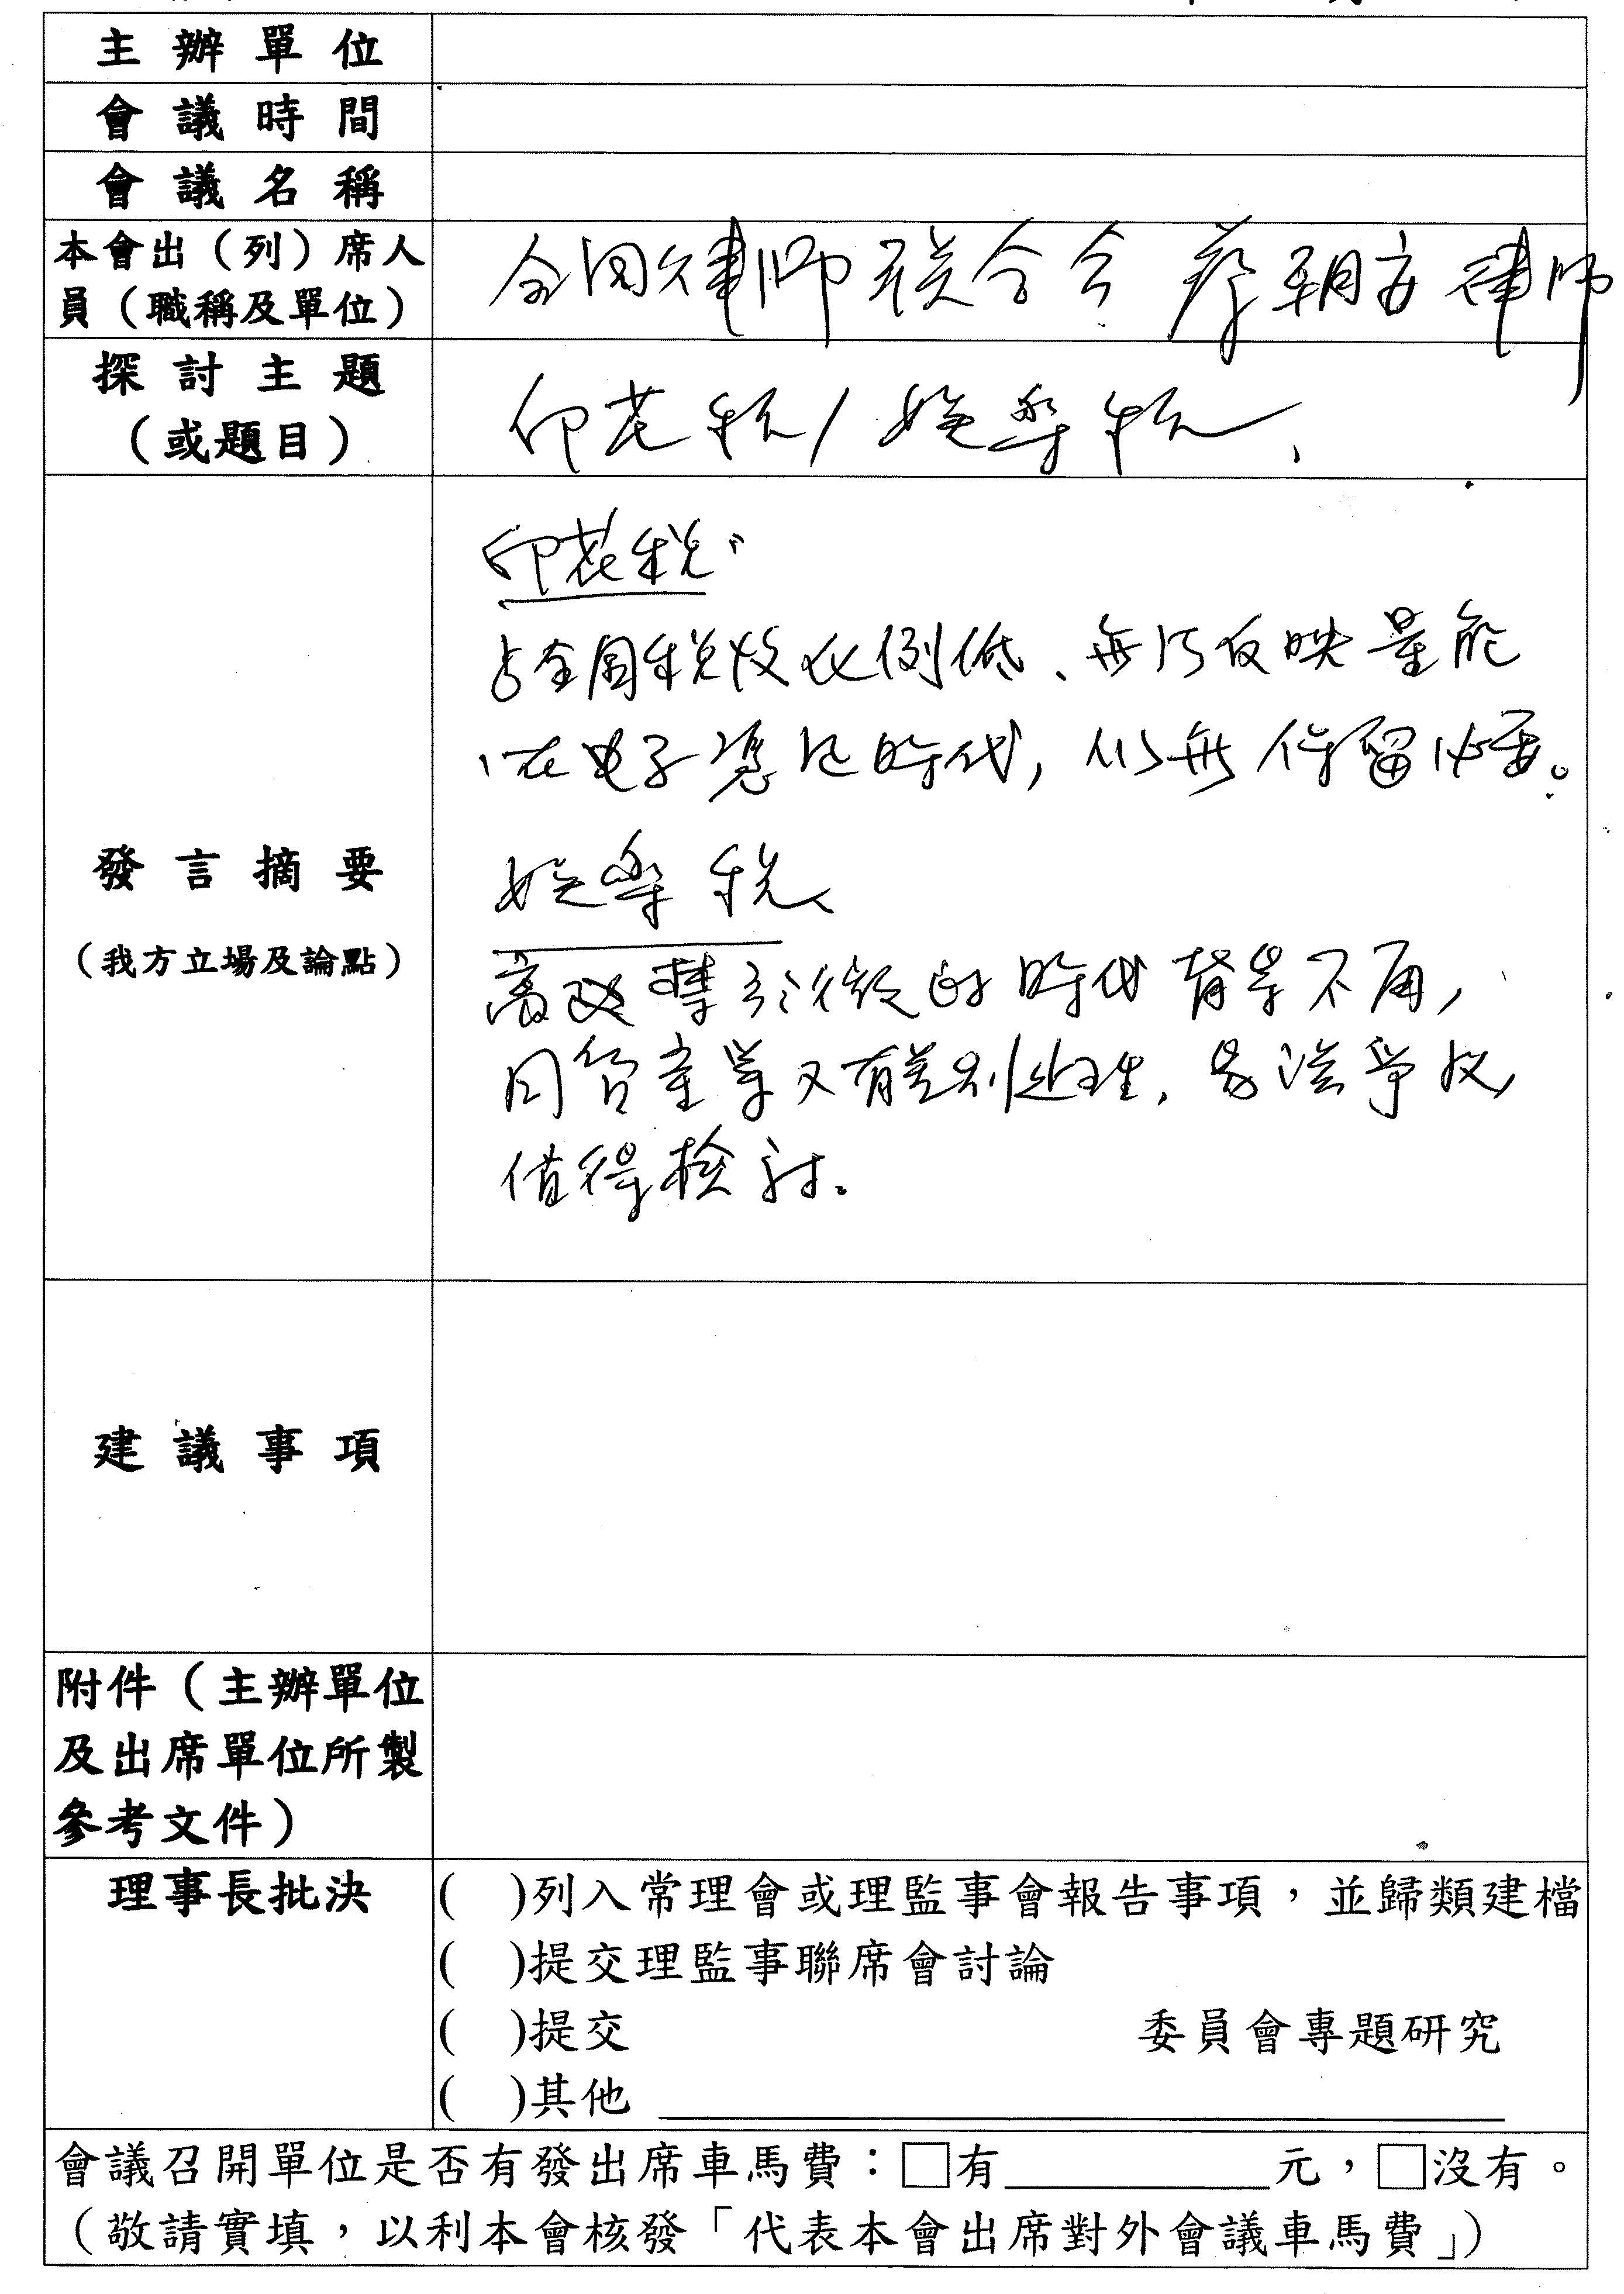 主辦單位
會議時間
會議名稱
本會出（列）席人
員（職稱及單位）
全国律師联合会 蔡朝安律師
探討主題
（或題目）
印花稅/娛樂稅、
印花稅
占全國稅收比例低、無法反映量能
在电子憑証時代，似無保留必要。
發言摘要
（我方立場及論點）
娛樂稅
寓政 的時代背景不再，
同等產業又有差別處理，易滋爭議
值得檢討。
建議事項
附件（主辦單位
及出席單位所製
參考文件）
理事長批決
( )列入常理會或理監事會報告事項，並歸類建檔
( )提交理監事聯席會討論
( )提交 委員會專題研究
( )其他
會議召開單位是否有發出席車馬費：□有 元，□沒有。
（敬請實填，以利本會核發「代表本會出席對外會議車馬費」）